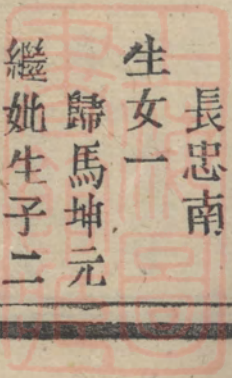 長忠南
生女一
歸馬坤元
繼妣生子二